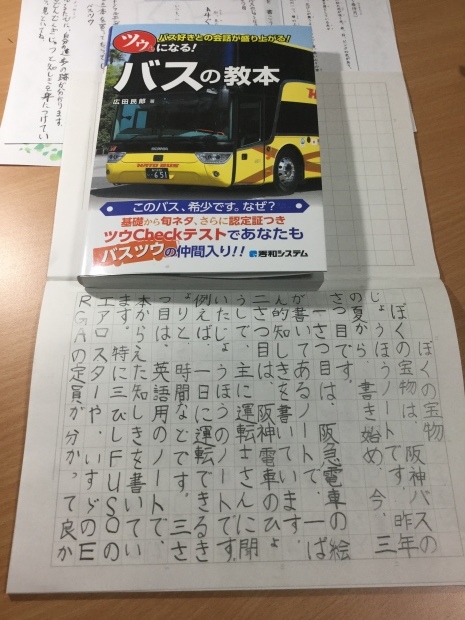 バス好きとの会話が盛り上がる!
ツウになる!
バスの教本
広田民郎 著
SCANIA
HATO BUS
651
このバス、希少です。なぜ?
基礎から旬ネタ、さらに認定証つき
ツウCheckテストであなたも
バスツウの仲間入り!!
秀和システム
ぼくの宝物
ぼくの宝物は、阪神バスの
じょうほうノートです。昨年
の夏から、書き始め、今、三
さつ目です。
一さつ目は、阪急電車の絵
が書いてあるノートで、一ぱ
ん的知しきを書いています。
二さつ目は、阪神電車のひょ
うしで、主に運転士さんに聞
いたじょうほうのノートです。
例えば、一日に運転できるき
ょりと、時間などです。三さ
つ目は、英語用のノートで、
本からえた知しきを書いてい
ます。特に三びしFUSOの
エアロスターや、いすゞのE
RGAの定員が分かって良か